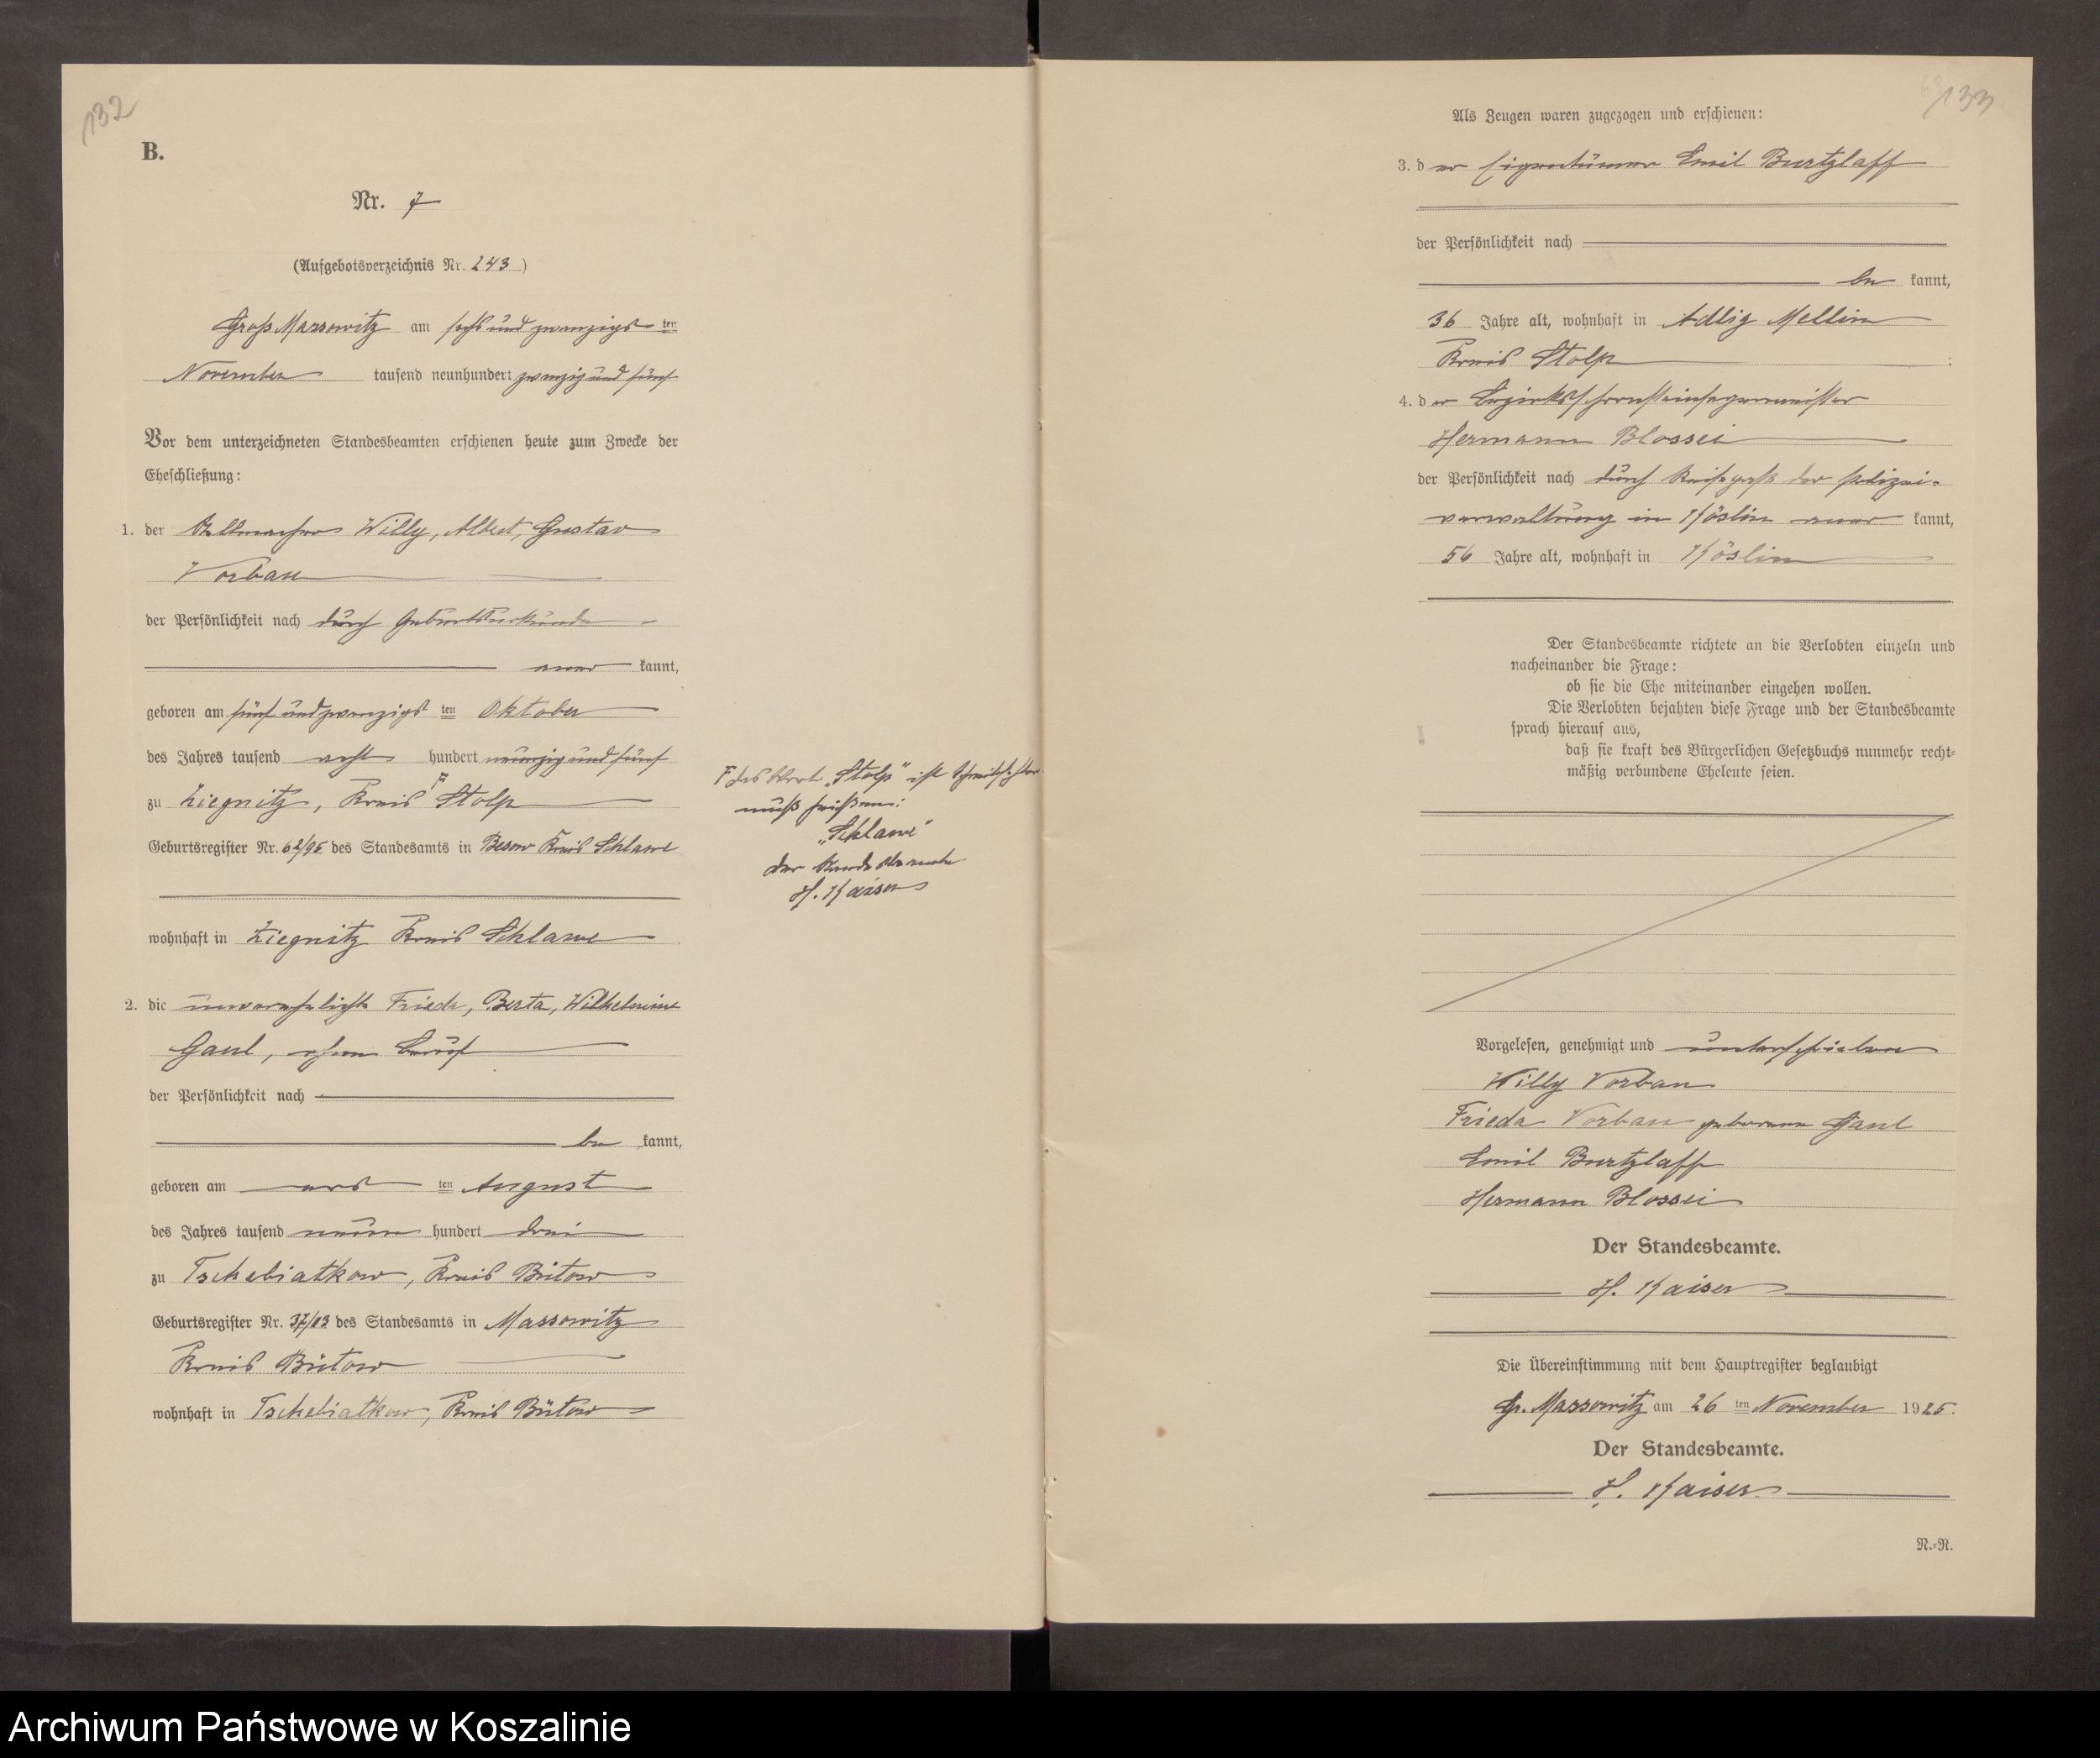 132
B.
Nr. 7
(Aufgebotsverzeichnis Nr. 243)
Groß Massowitz am sechsundzwanzigsten
November tausend neunhundert zwanzig und fünf
Vor dem unterzeichneten Standesbeamten erschienen heute zum Zwecke der
Eheschließung:
1. der Stellmacher Willy, Albert, Gustav
Vorbau
der Persönlichkeit nach durch Geburtsurkunde
aner kannt,
geboren am fünfundzwanzigsten Oktober
des Jahres tausend acht hundert neunzig und fünf
zu Ziegnitz, Kreis F Stolp
Geburtsregister Nr. 62/95 des Standesamts in Besow Kreis Schlawe
wohnhaft in Ziegnitz Kreis Schlawe
2. die unverehelichte Frieda, Berta, Wilhelmine
Gaul, ohne Beruf
der Persönlichkeit nach
be kannt,
geboren am ersten August
des Jahres tausend neun hundert drei
zu Tschebiatkow, Kreis Bütow
Geburtsregister Nr. 37/03 des Standesamts in Massowitz
Kreis Bütow
wohnhaft in Tschebiatkow, Kreis Bütow
F das Wort „Stolp" ist Schreibfehler
muß heißen:
„Schlawe"
der Standesbeamte
H. Kaiser
133
Als Zeugen waren zugezogen und erschienen:
3. der Eigentümer Emil Burtzlaff
der Persönlichkeit nach
be kannt,
36 Jahre alt, wohnhaft in Adlig Mellin
Kreis Stolp ;
4. der Bezirksschornsteinfegermeister
Hermann Blossei
der Persönlichkeit nach durch Reisepaß der Polizei-
verwaltung in Köslin aner kannt,
56 Jahre alt, wohnhaft in Köslin
Der Standesbeamte richtete an die Verlobten einzeln und
nacheinander die Frage:
ob sie die Ehe miteinander eingehen wollen.
Die Verlobten bejahten diese Frage und der Standesbeamte
sprach hierauf aus,
daß sie kraft des Bürgerlichen Gesetzbuchs nunmehr recht-
mäßig verbundene Eheleute seien.
Vorgelesen, genehmigt und unterschrieben
Willy Vorbau
Frieda Vorbau geborene Gaul
Emil Burtzlaff
Hermann Blossei
Der Standesbeamte.
H. Kaiser
Die Übereinstimmung mit dem Hauptregister beglaubigt
Gr. Massowitz am 26 ten November 1925.
Der Standesbeamte.
H. Kaiser
N.-R.
Archiwum Państwowe w Koszalinie